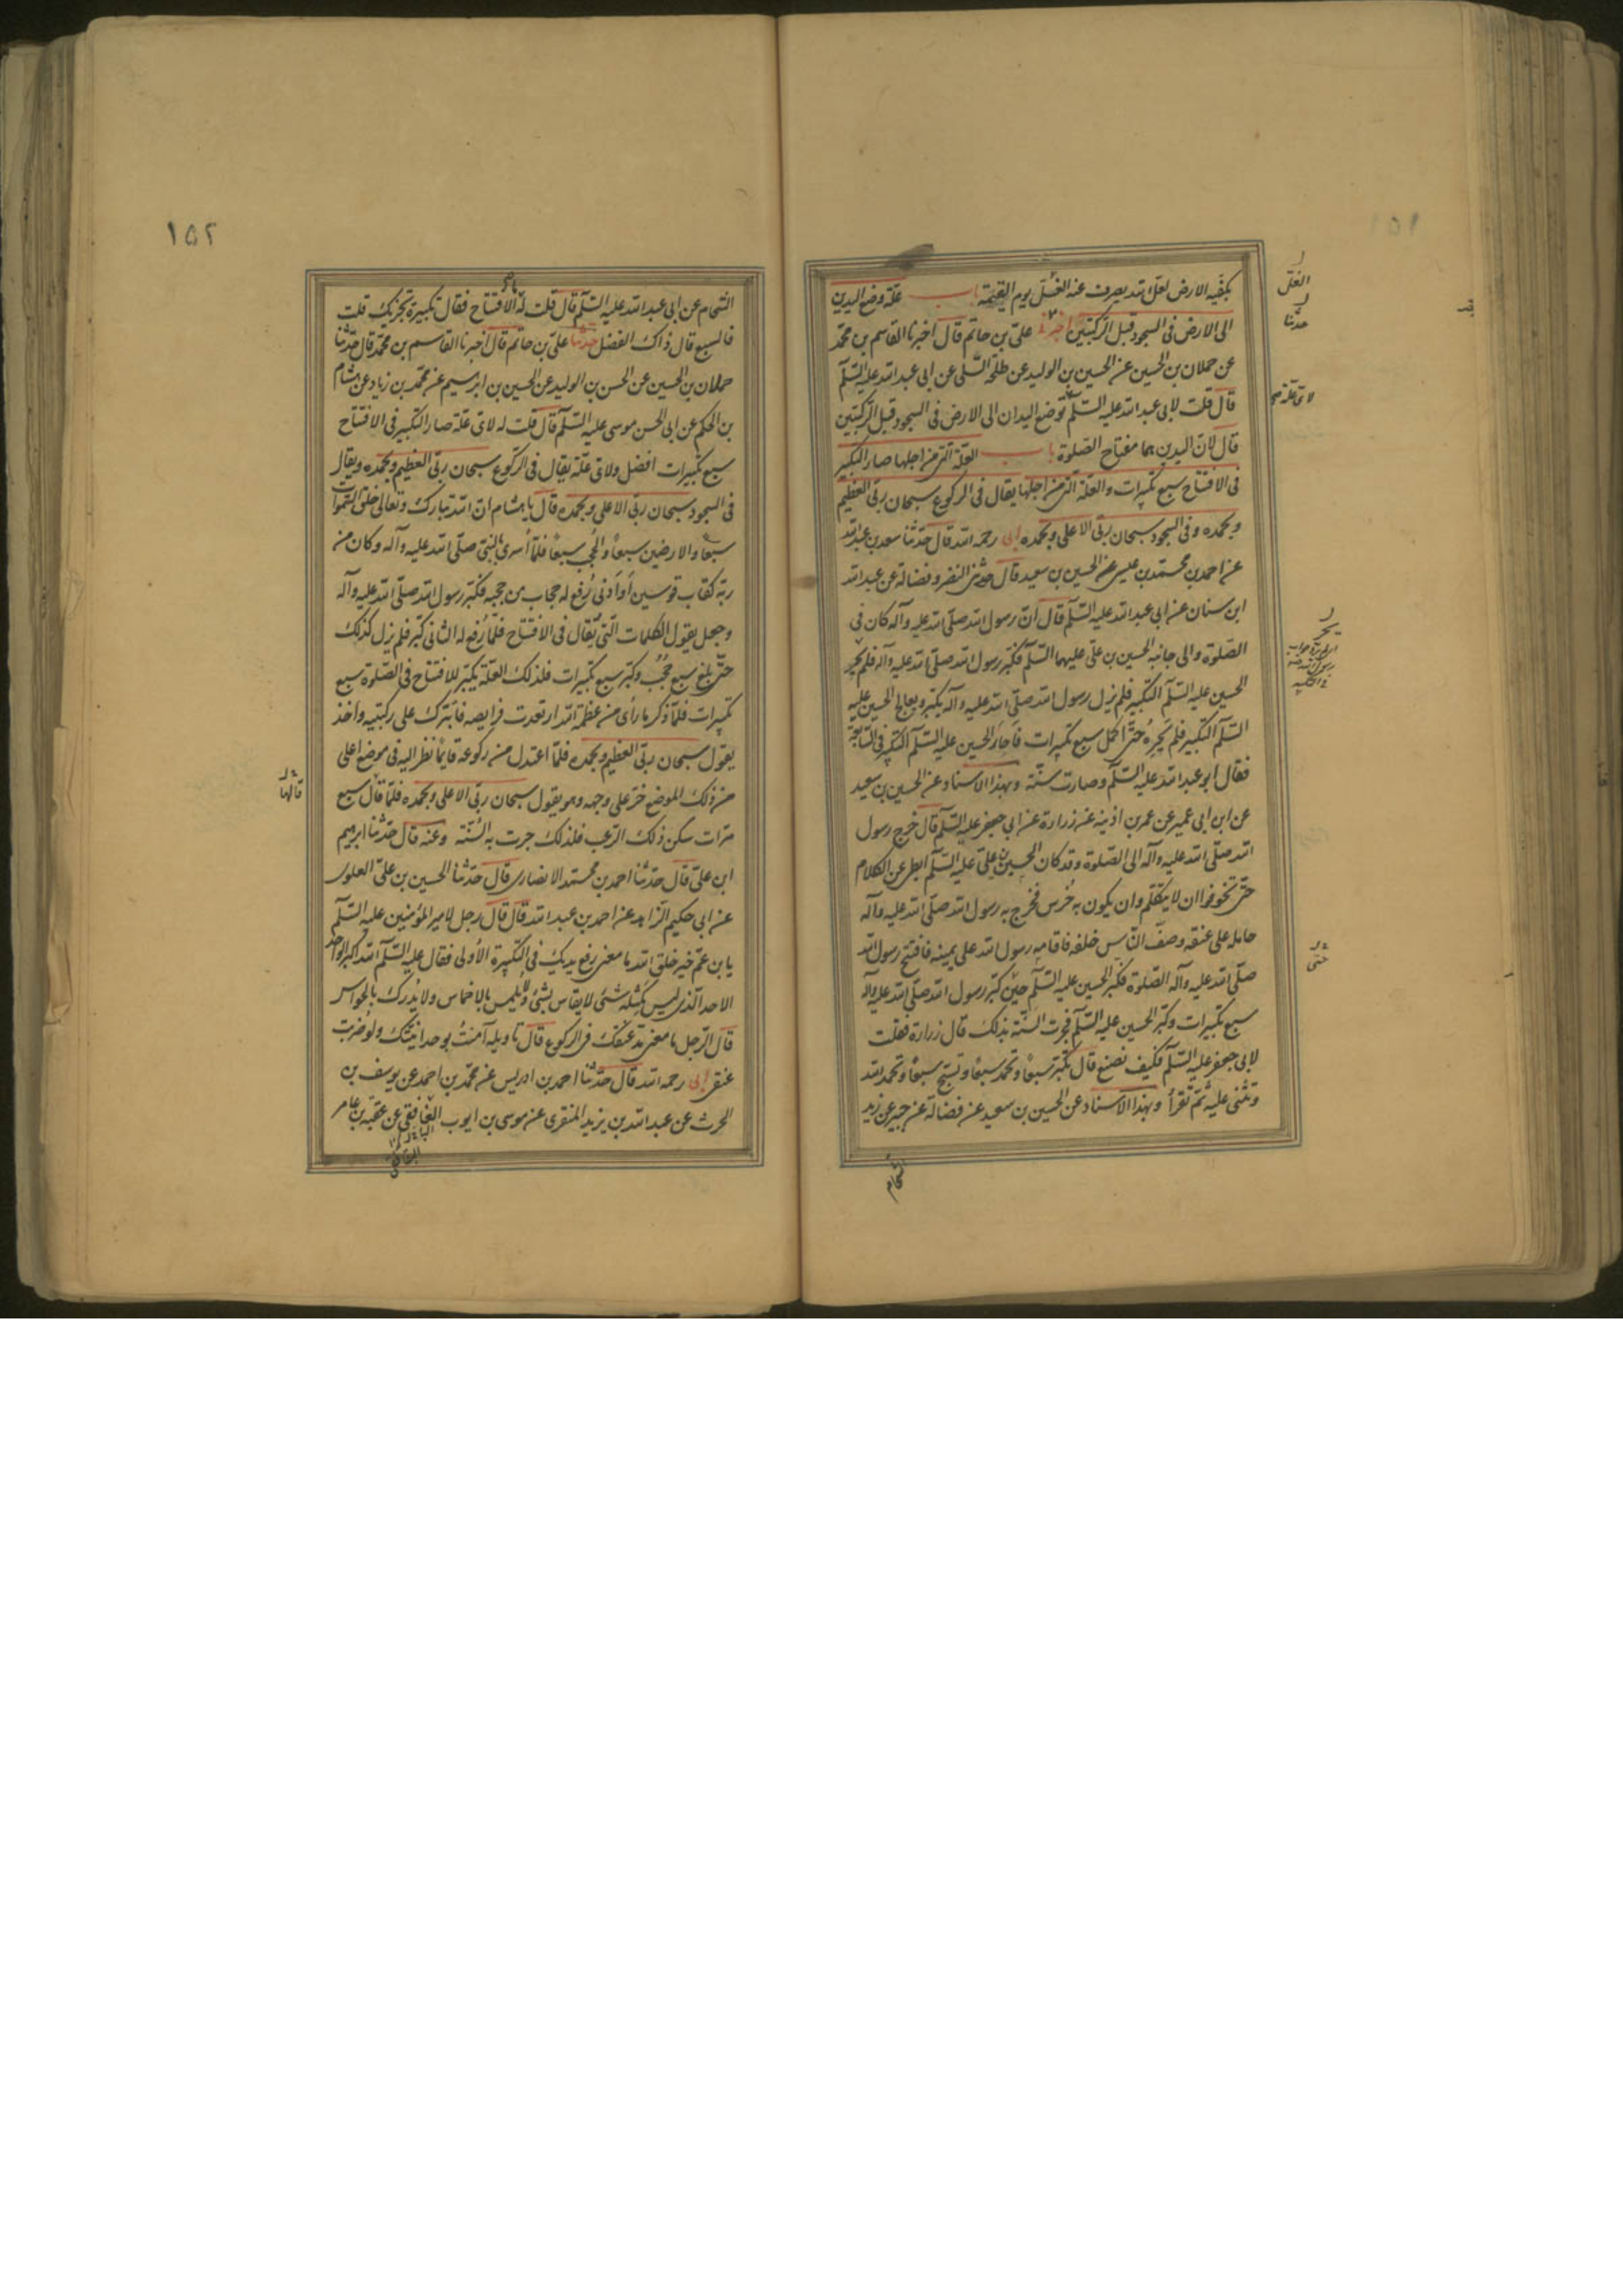 ١٥١
بكفيه الارض لعل الله يصرف عنه الغل يوم القيمة باب علة وضع اليدين
الى الارض فى السجود قبل الركبتين اخبرنى على بن حاتم قال اخبرنا القاسم بن محمد
عن حملان بن الحسين عن الحسين بن الوليد عن طلحة السلمى عن ابى عبد الله عليه السلم
قال قلت لابى عبد الله عليه السلم توضع اليدان الى الارض فى السجود قبل الركبتين
قال لان اليدين هما مفتاح الصلوة باب العلة التى من اجلها صار التكبير
فى الافتتاح سبع تكبيرات والعلة التى من اجلها يقال فى الركوع سبحان ربى العظيم
وبحمده وفى السجود سبحان ربى الاعلى وبحمده ابى رحمه الله قال حدثنا سعد بن عبد الله
عن احمد بن محمد بن عيسى عن الحسين بن سعيد قال حدثنى النضر وفضالة عن عبد الله
ابن سنان عن ابى عبد الله عليه السلم قال ان رسول الله صلى الله عليه وآله كان فى
الصلوة والى جانبه الحسين بن على عليهما السلم فكبر رسول الله صلى الله عليه وآله فلم يحر
الحسين عليه السلم التكبير فلم يزل رسول الله صلى الله عليه وآله يكبر ويعالج الحسين عليه
السلم التكبير فلم يحره حتى اكمل سبع تكبيرات فاحار الحسين عليه السلم التكبير فى السابعة
فقال ابو عبد الله عليه السلم وصارت سنة وبهذا الاسناد عن الحسين بن سعيد
عن ابن ابى عمير عن عمر بن اذينه عن زرارة عن ابى جعفر عليه السلم قال خرج رسول
الله صلى الله عليه وآله الى الصلوة وقد كان الحسين بن على عليه السلم ابطئ عن الكلام
حتى تخوفوا ان لا يتكلم وان يكون به خرس فخرج به رسول الله صلى الله عليه وآله
حامله على عنقه وصف الناس خلفه فاقامه رسول الله على يمينه فافتتح رسول الله
صلى الله عليه وآله الصلوة فكبر الحسين عليه السلم حين كبر رسول الله صلى الله عليه وآله
سبع تكبيرات وكبر الحسين عليه السلم فجرت السنة بذلك قال زرارة فقلت
لابى جعفر عليه السلم فكيف نصنع قال تكبر سبعا وتحمد سبعا وتسبح سبعا وتحمد الله
وتثنى عليه ثم تقرأ وبهذا الاسناد عن الحسين بن سعيد عن فضالة عن حسين عن زيد
الشحام
الغل
حدثنا
لاى علة
١٥٢
الشحام عن ابى عبد الله عليه السلم قال قلت له الافتتاح فقال تكبيرة تجزيك قلت
فالسبع قال ذاك الفضل حدثنا على بن حاتم قال اخبرنا القاسم بن محمد قال حدثنا
حملان بن الحسين عن الحسن بن الوليد عن الحسين بن ابرهيم عن محمد بن زياد عن هشام
بن الحكم عن ابى الحسن موسى عليه السلم قال قلت له لاى علة صار التكبير فى الافتتاح
سبع تكبيرات افضل ولاى علة يقال فى الركوع سبحان ربى العظيم وبحمده ويقال
فى السجود سبحان ربى الاعلى وبحمده قال يا هشام ان الله تبارك وتعالى خلق السموات
سبعا والارضين سبعا والحجب سبعا فلما أسرى بالنبى صلى الله عليه وآله وكان من
ربه كقاب قوسين أو أدنى رُفع له حجاب من حجبه فكبر رسول الله صلى الله عليه وآله
وجعل يقول الكلمات التى يُقال فى الافتتاح فلما رُفع له الثانى كبر فلم يزل كذلك
حتى بلغ سبع حُجُب وكبر سبع تكبيرات فلذلك العلة يكبر للافتتاح فى الصلوة سبع
تكبيرات فلما ذكر ما رأى من عظمة الله ارتعدت فرايصه فابترك على ركبتيه واخذ
يقول سبحان ربى العظيم وبحمده فلما اعتدل من ركوعه قايما نظر اليه فى موضع اعلى
من ذلك الموضع خر على وجهه وهو يقول سبحان ربى الاعلى وبحمده فلما قال سبع
مرات سكن ذلك الرعب فلذلك جرت به السُنة وعنه قال حدثنا ابرهيم
ابن على قال حدثنا احمد بن محمد الانصارى قال حدثنا الحسين بن على العلوى
عن ابى حكيم الزاهد عن احمد بن عبد الله قال قال رجل لامير المؤمنين عليه السلم
يا بن عم خير خلق الله ما معنى رفع يديك فى التكبيرة الأولى فقال عليه السلم الله اكبر الواحد
الاحد الذى ليس كمثله شئ لا يقاس بشئ ولا يلمس بالاخماس ولا يُدرك بالحواس
قال الرجل ما معنى مد عنقك فى الركوع قال تاويله آمنتُ بوحدانيتك ولو ضربت
عنقى ابى رحمه الله قال حدثنا احمد بن ادريس عن محمد بن احمد عن يوسف بن
الحرث عن عبد الله بن يزيد المنقرى عن موسى بن ايوب الغافقى عن عقبة بن عامر
قالها